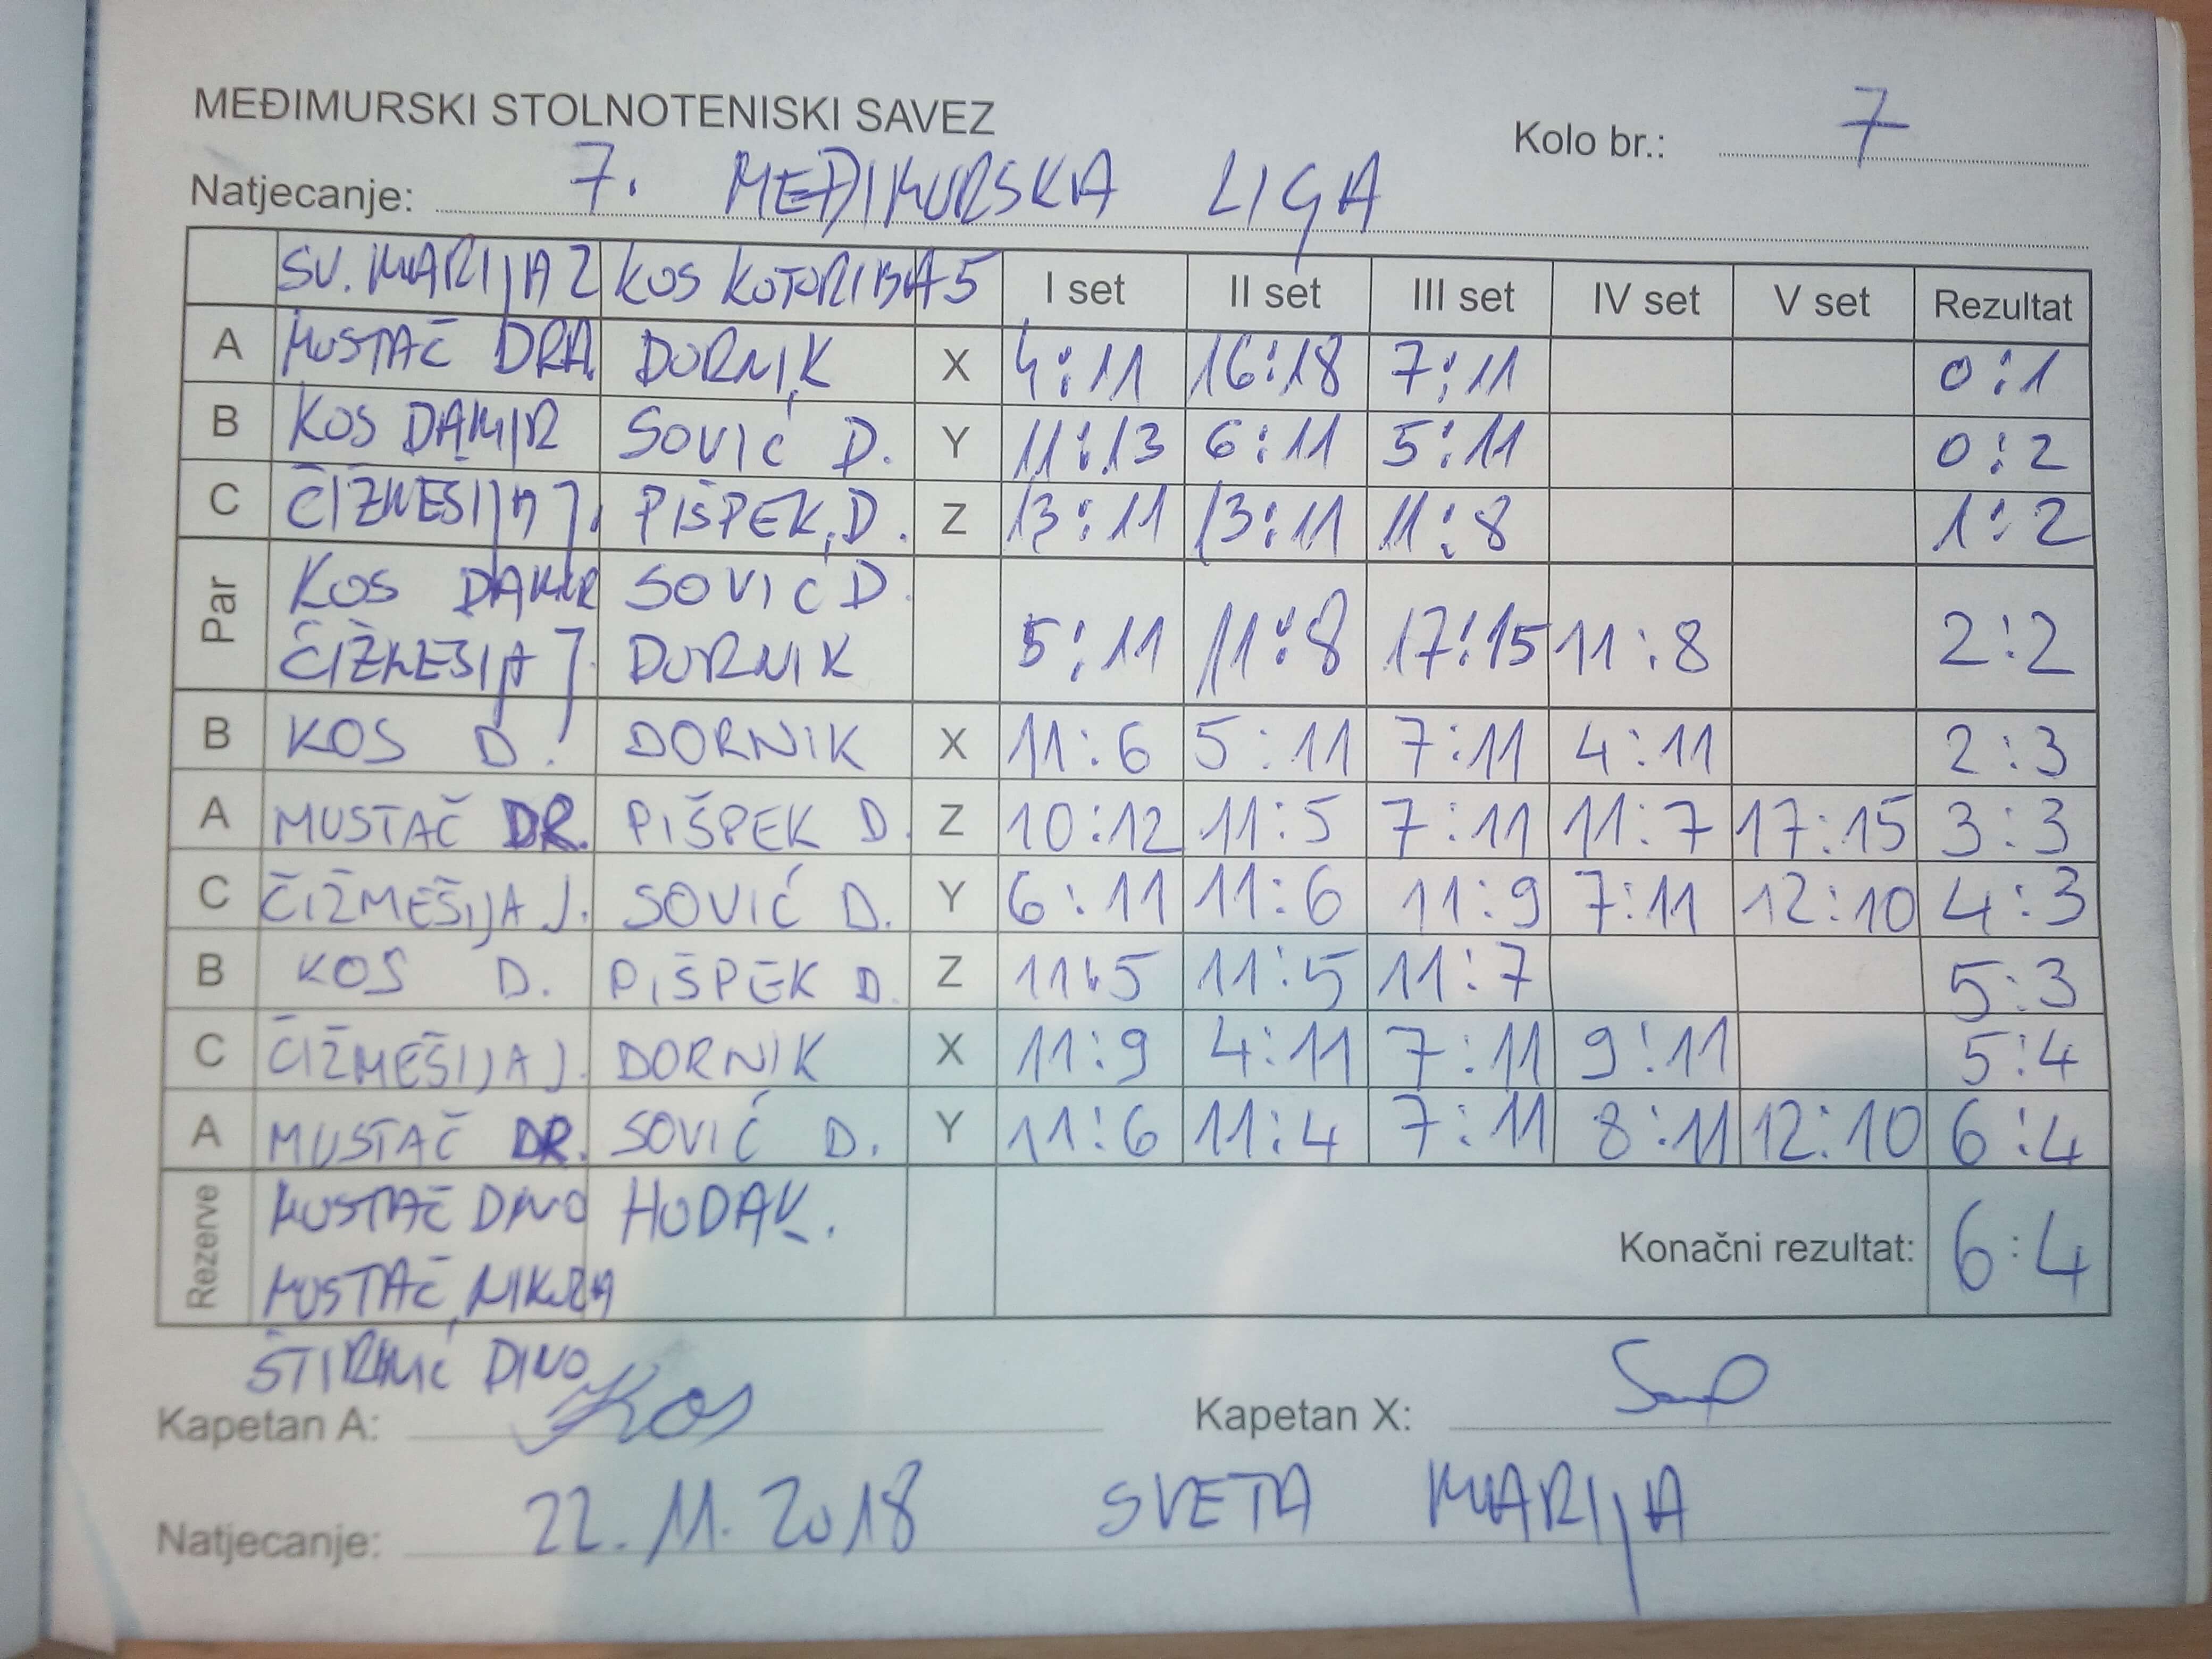 MEĐIMURSKI STOLNOTENISKI SAVEZ
Kolo br.: 7
Natjecanje: 7. MEĐIMURSKA LIGA
SV. MARIJA 2 KOS KOTORIBA 5 I set II set III set IV set V set Rezultat
A MUSTAČ DRA. DORNIK X 4:11 16:18 7:11 0:1
B KOS DAMIR SOVIĆ D. Y 11:13 6:11 5:11 0:2
C ČIŽMEŠIJA J. PIŠPEK D. Z 13:11 13:11 11:8 1:2
Par KOS DAMIR SOVIĆ D.
ČIŽMEŠIJA J. DORNIK 5:11 11:8 17:15 11:8 2:2
B KOS D. DORNIK X 11:6 5:11 7:11 4:11 2:3
A MUSTAČ DR. PIŠPEK D. Z 10:12 11:5 7:11 11:7 17:15 3:3
C ČIŽMEŠIJA J. SOVIĆ D. Y 6:11 11:6 11:9 7:11 12:10 4:3
B KOS D. PIŠPEK D. Z 11:5 11:5 11:7 5:3
C ČIŽMEŠIJA J. DORNIK X 11:9 4:11 7:11 9:11 5:4
A MUSTAČ DR. SOVIĆ D. Y 11:6 11:4 7:11 8:11 12:10 6:4
Rezerve MUSTAČ DINO HODAK.
MUSTAČ NIKOLA
Konačni rezultat: 6:4
ŠTIRMIĆ DINO
Kapetan A: Kos Kapetan X:
Natjecanje: 22.11.2018 SVETA MARIJA